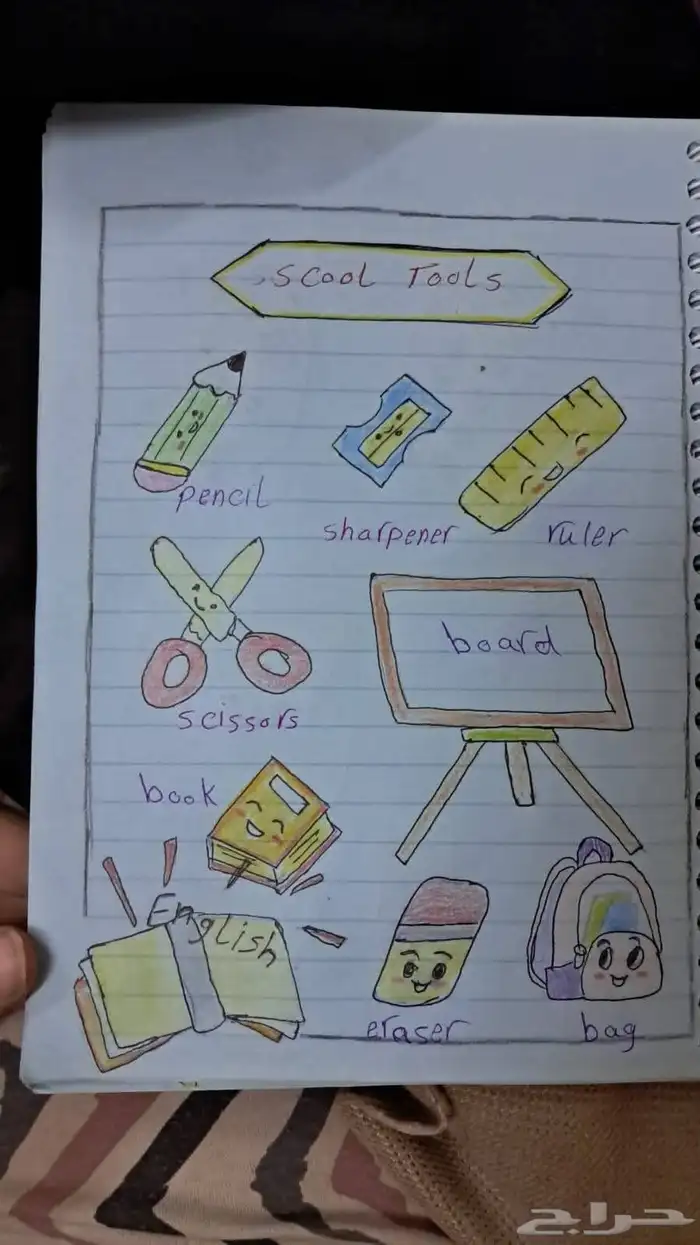 Scool Tools
pencil
sharpener
ruler
scissors
board
book
English
eraser
bag
حراج